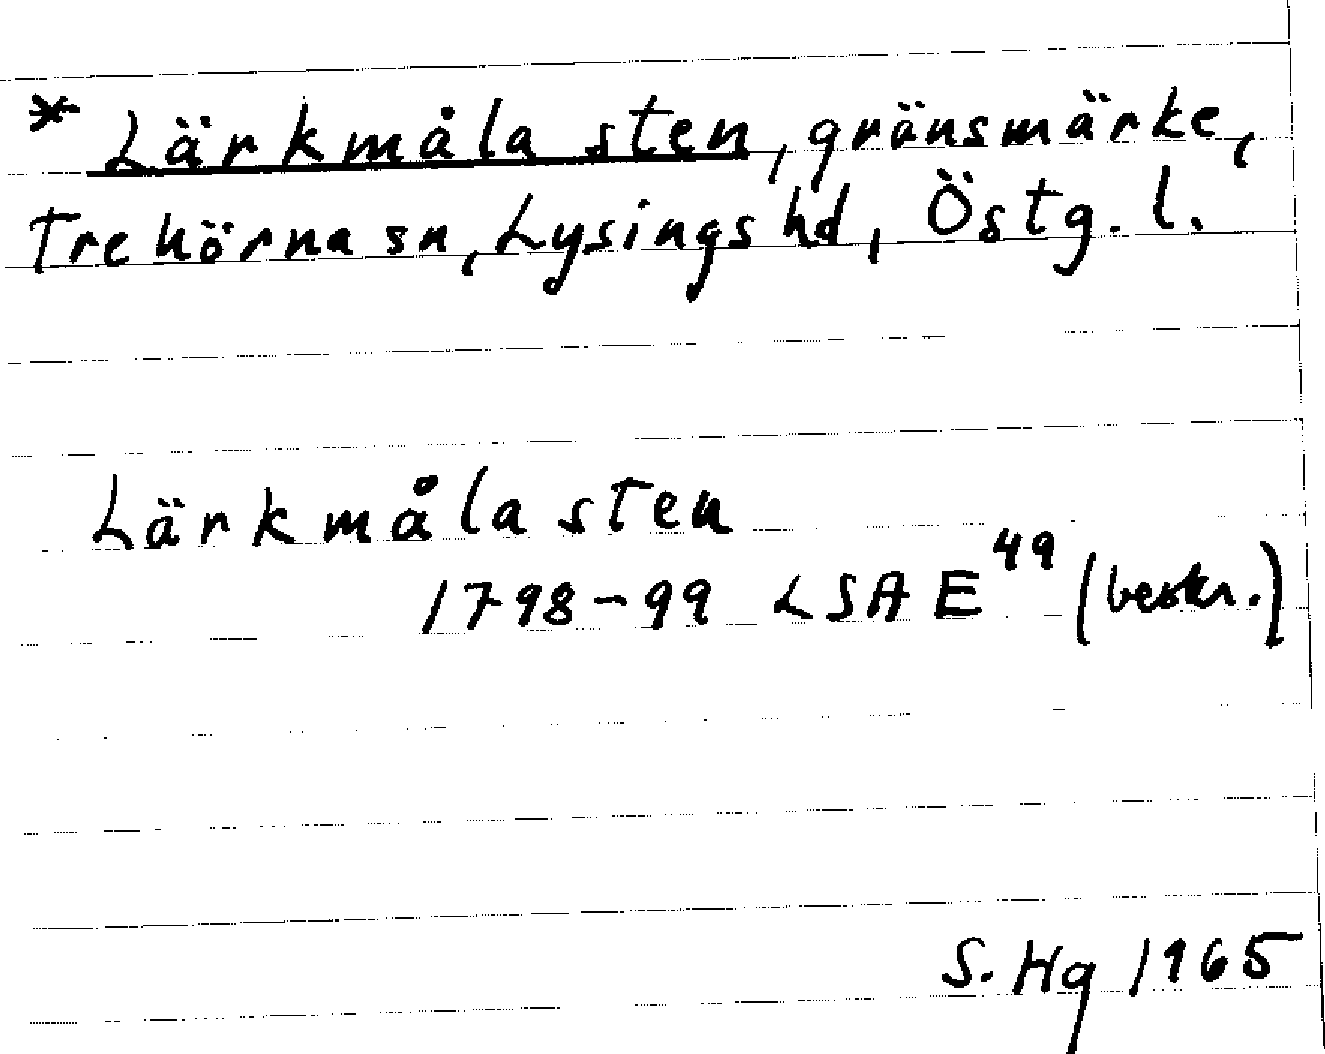 * Lärkmåla sten, gränsmärke,
Trehörna sn, Lysings hd, Östg. l.
Lärkmåla sten
1798-99 LSA E 49 (beskr.)
S. Hg 1965